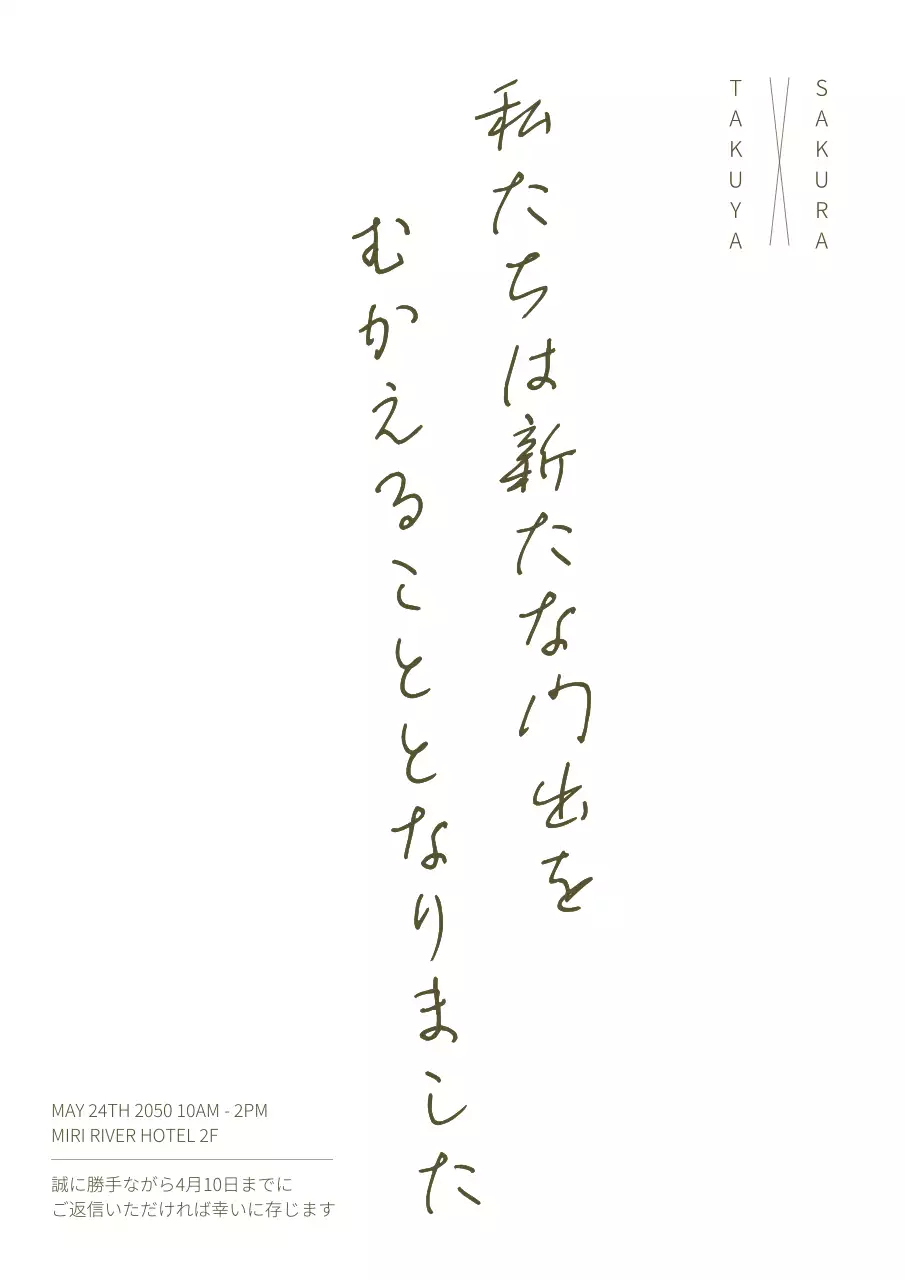 SAKURA
TAKUYA
私たちは新たな門出を
むかえることとなりました
MAY 24TH 2050 10AM - 2PM
MIRI RIVER HOTEL 2F
誠に勝手ながら4月10日までに
ご返信いただければ幸いに存じます